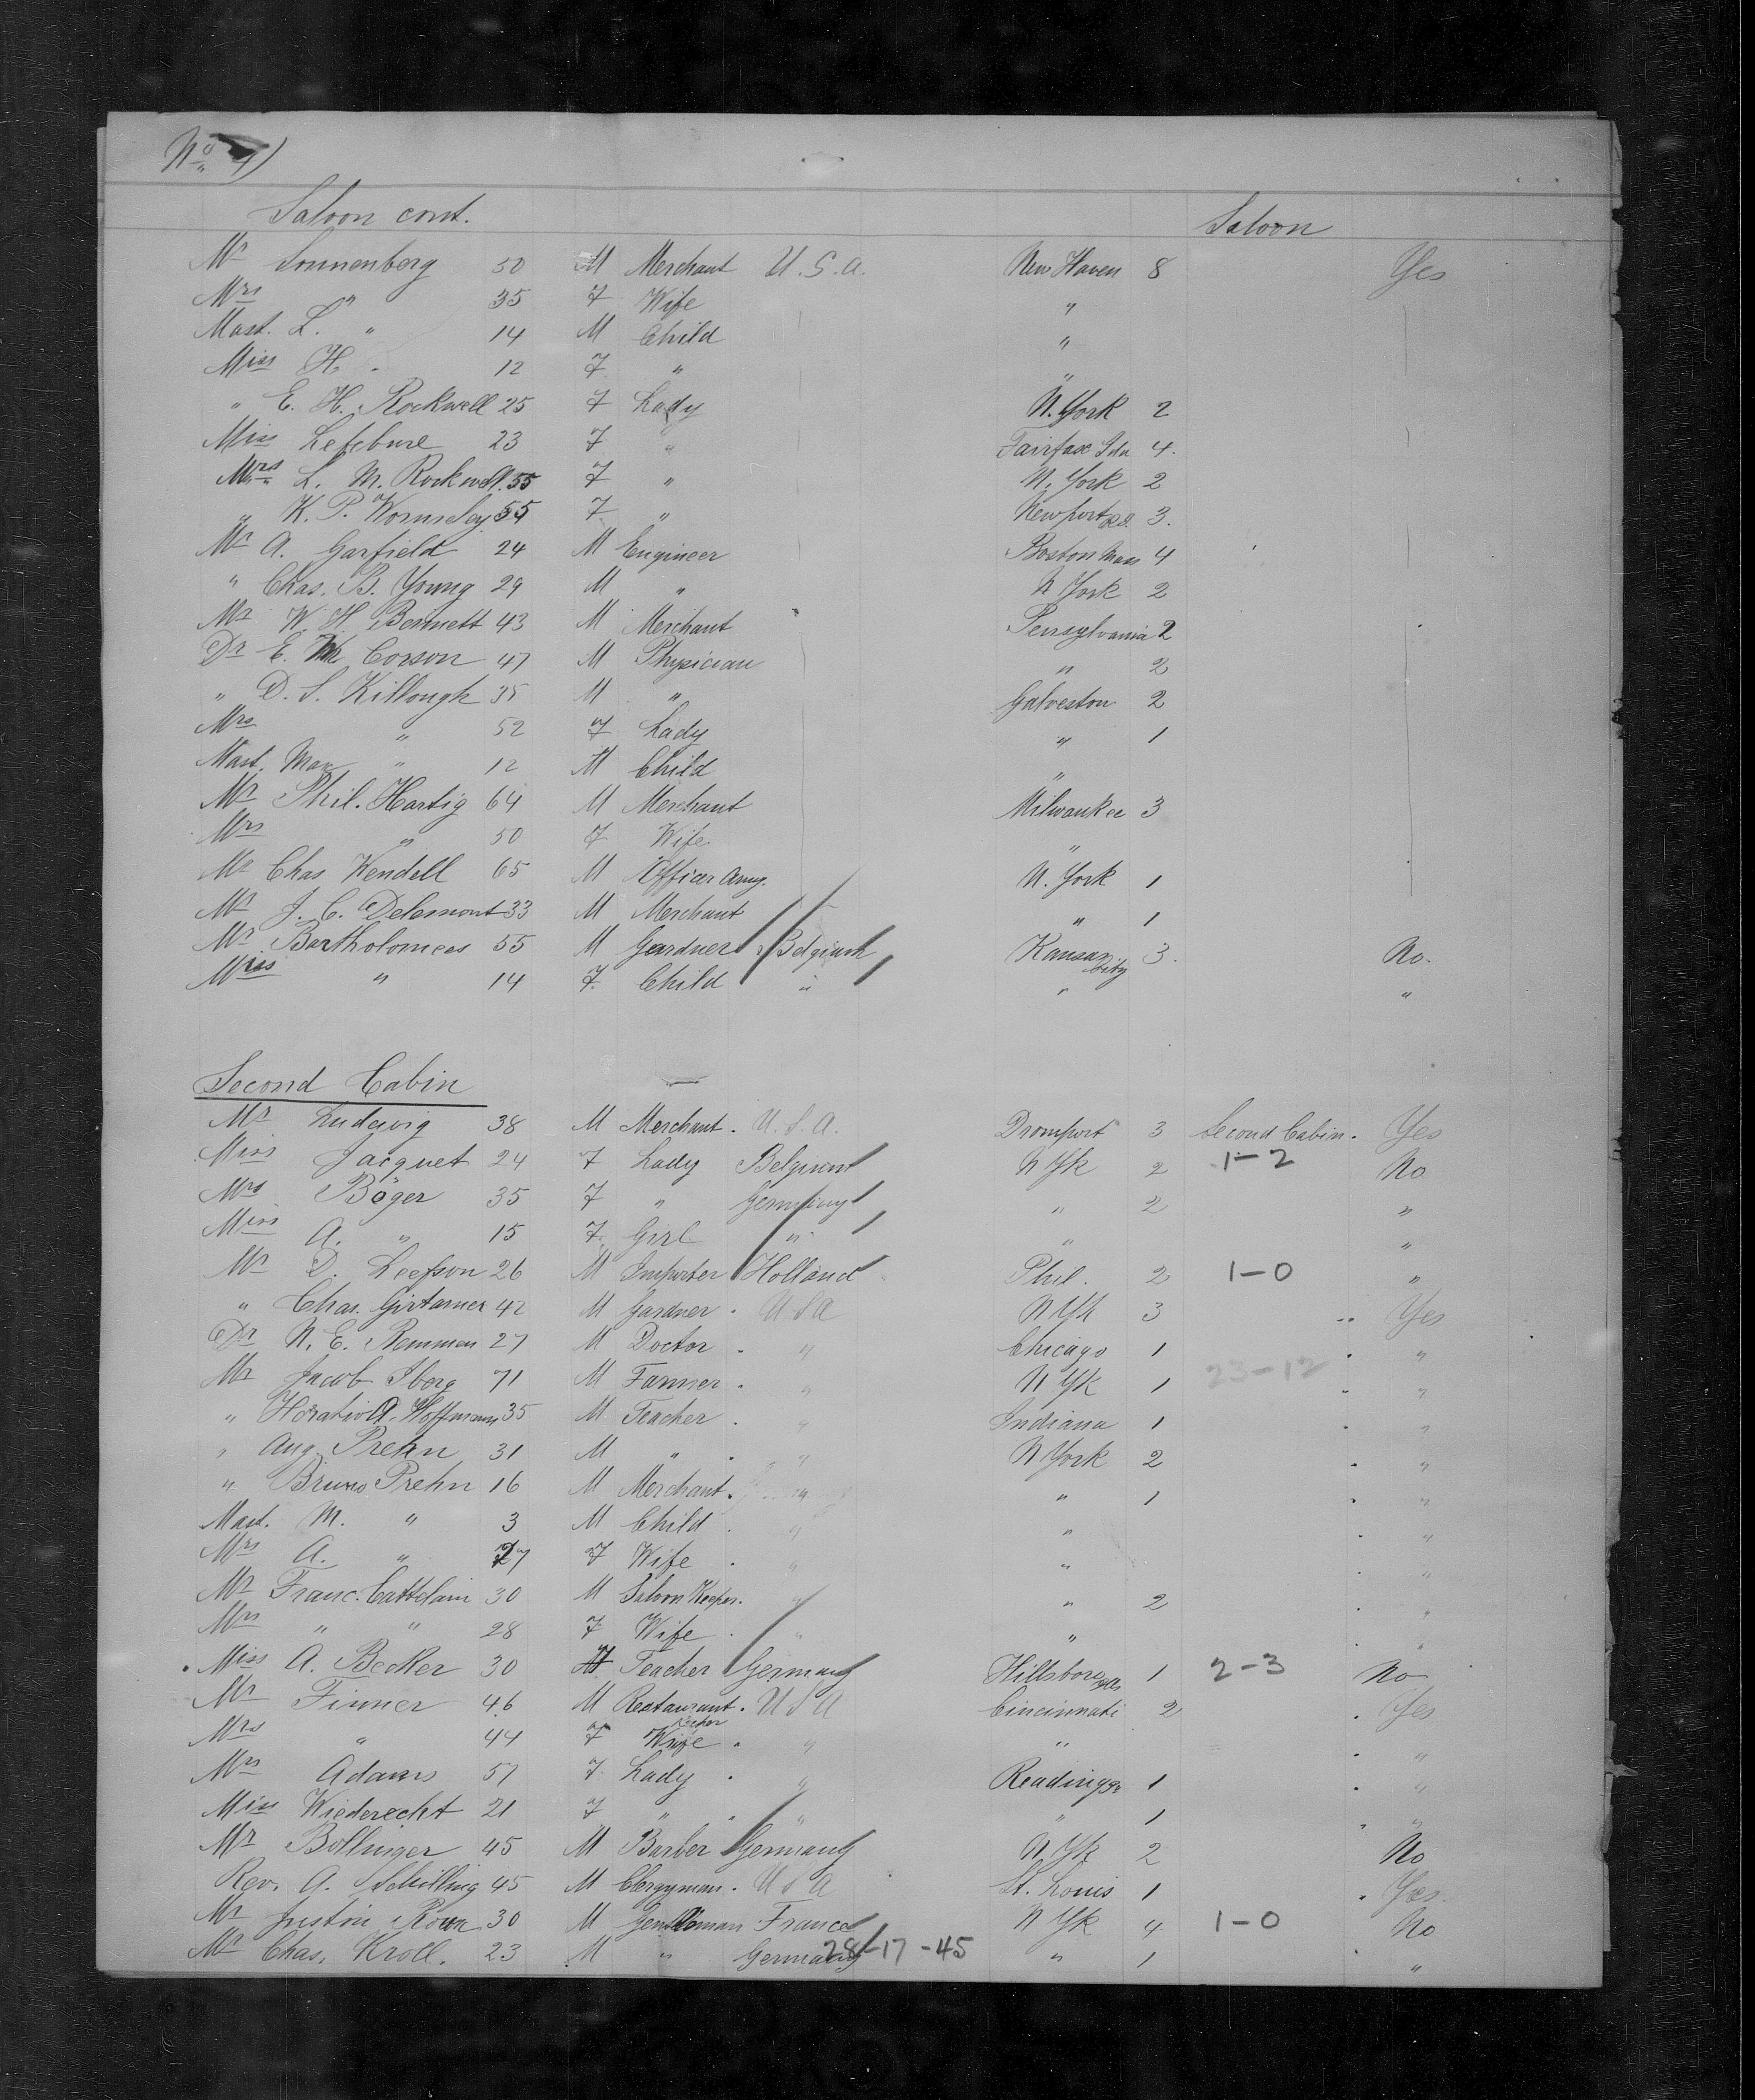 No 4)
Saloon cont. Saloon
Mr Sonnenberg 50 M Merchant U.S.A. New Haven 8 Yes
Mrs " 35 F Wife "
Mast. L. " 14 M Child "
Miss H. " 12 F " "
" E. H. Rockwell 25 F Lady N. York 2
Miss Lefebure 23 F " Fairfax 4.
Mrs L. M. Rockwell 55 F " N. York 2
" K. P. Wormeley 54 F " Newport R.I. 3.
Mr A. Garfield 24 M Engineer Boston Mass 4
" Chas. B. Young 29 M " N York 2
Mr W H Bennett 43 M Merchant Pensylvania 2
Dr E. Corson 47 M Physician " 2
" D. S. Killough 35 M " Galveston 2
Mrs " 52 F Lady " 1
Mast. Max " 12 M Child "
Mr Phil. Hartig 64 M Merchant Milwaukee 3
Mrs " 50 F Wife "
Mr Chas Wendell 65 M Officer Army. N. York 1
Mr J. C. Delamont 33 M Merchant " 1
Mr Bartholomees 55 M Gardner Belgium Kansas City 3. No.
Miss " 14 F. Child " " "
Second Cabin
Mr Ludewig 38 M Merchant. U.S.A. 3 Second Cabin. Yes
Miss Jacquet 24 F Lady Belgium N Yk 2 1-2 No
Mrs Böger 35 F " Germany " 2 "
Miss A. " 15 F. Girl " " "
Mr D. Leefson 26 M Importer Holland Phil. 2 1-0 "
" Chas. Girtanner 42 M Gardner. U S A N Yk 3 " Yes
Dr N. E. Remmen 27 M Doctor. " Chicago 1 " "
Mr Jacob Iberg 71 M Farmer. " N Yk 1 23-12 " "
" Horatio A. Hoffmann 35 M Teacher. " Indiana 1 " "
" Aug. Prehn 31 M " . " N York 2 " "
" Bruno Prehn 16 M Merchant. " " 1 " "
Mast. M. " 3 M Child. " " " "
Mrs A. " 27 F Wife. " " " "
Mr Franc. Cattelain 30 M Saloon Keeper. " " 2 " "
Mrs " " 28 F Wife. " " " "
Miss A. Becker 30 F Teacher Germany Hillsboro 1 2-3 No
Mr Finner 46 M Restaurant keeper. U S A Cincinnati 2 " Yes
Mrs " 44 F Wife. " " " "
Mrs Adams 57 F. Lady. " Reading Pa 1 " "
Miss Wiederecht 21 F " . " " 1 " "
Mr Bollinger 45 M Barber Germany N Yk 2 No
Rev. A. Schilling 45 M Clergyman. U S A St. Louis 1 " Yes.
Mr Justin 30 M Gentleman France N Yk 4 1-0 No
Mr Chas. Kroll. 23 M " Germany 28-17-45 " 1 "